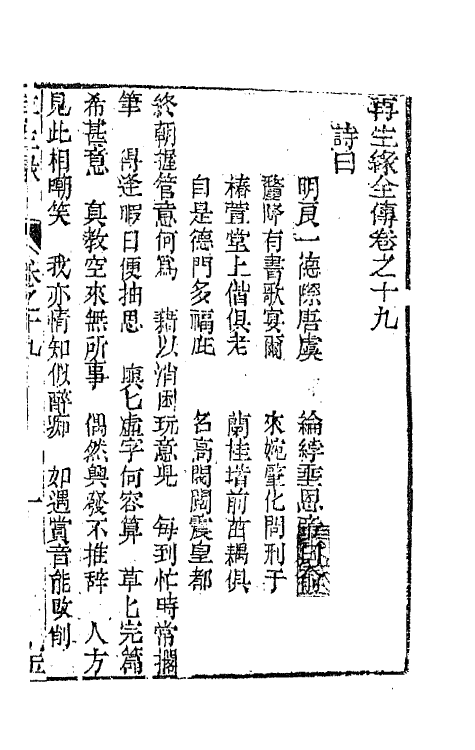 再生緣全傳卷之十九
詩曰
明良一德際唐虞　綸綍聖恩
釐降有書歌宴爾　來婉雝化問刑于
椿萱堂上偕俱老　蘭桂堦前苗耦俱
自是德門多福庇　名高閥閱震皇都
終朝握管意何爲　藉以消困玩意兒　每到忙時常擱
筆　得逢暇日便抽思　與匕虛字何容算　草匕完篇
希甚意　真教空來無所事　偶然興發不推辞　人方
見此相嘲笑　我亦情知似醉痴　如遇賞音能改削
卷之十九　一